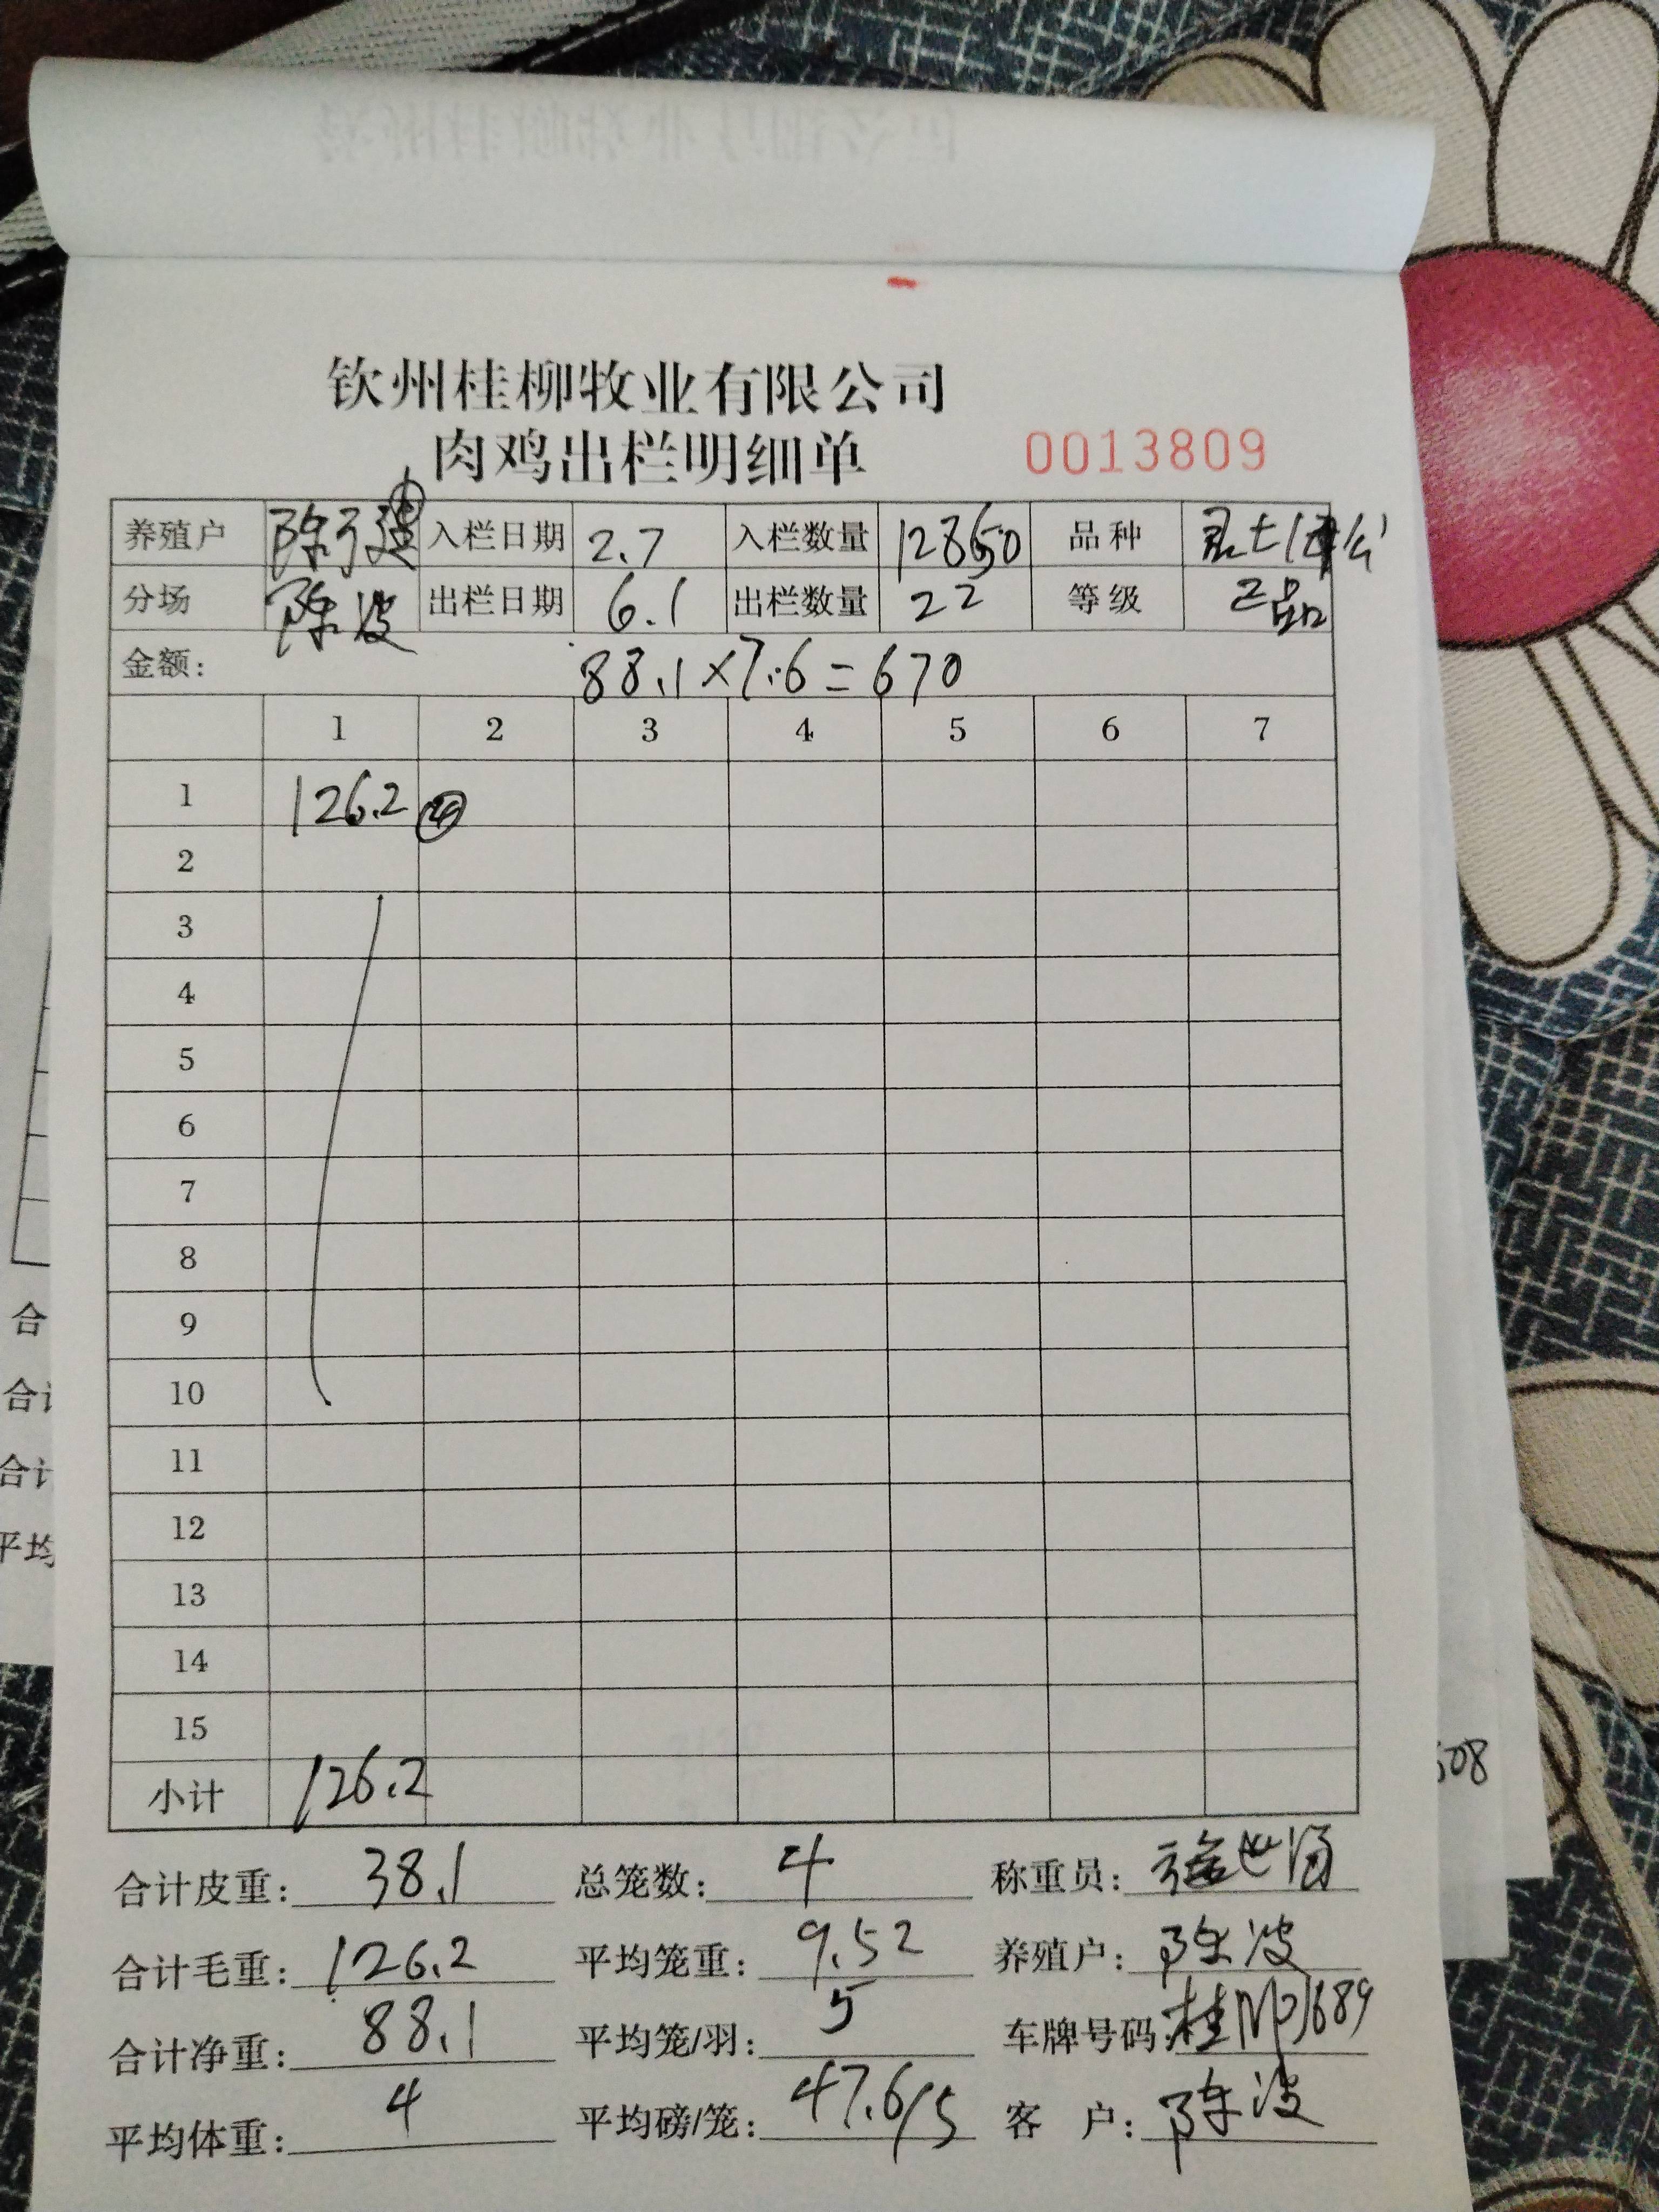 钦州桂柳牧业有限公司
肉鸡出栏明细单 0013809
养殖户 入栏日期 2.7 入栏数量 12860 品种
分场 陈波 出栏日期 6.1 出栏数量 22 等级 正品
金额: 88.1×7.6=670
1 2 3 4 5 6 7
1 126.2
2
3
4
5
6
7
8
9
10
11
12
13
14
15
小计 126.2
合计皮重: 38.1 总笼数: 4 称重员:
合计毛重: 126.2 平均笼重: 9.52 养殖户: 陈波
合计净重: 88.1 平均笼/羽: 5 车牌号码:
平均体重: 4 平均磅/笼: 47.6/5 客 户: 陈波
合
合计
合计
平均
508